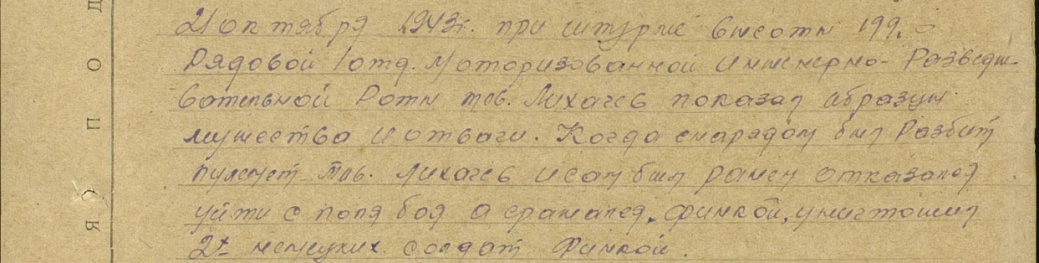 21 октября 1943 г. при штурме высоты 199.
Рядовой 1 отд. Моторизованной Инженерно- Разведы-
вательной Роты тов. Лихачев показал образцы
мужества и отваги. Когда снарядом был Разбит
пулемет тов. Лихачев и сам был ранен отказался
уйти с поля боя и сражался финкой, уничтожил
2х немецких солдат финкой.
Я П О Д